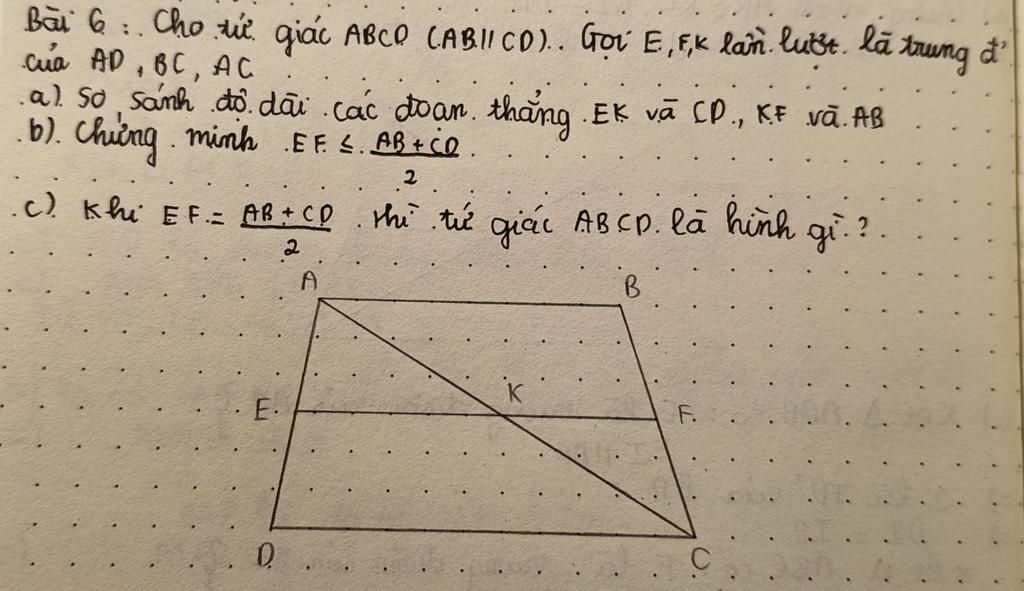 Bài 6 : Cho tứ giác ABCD (AB//CD). Gọi E, F, K lần lượt là trung đ'
của AD, BC, AC
a) So sánh độ dài các đoạn thẳng EK và CD, KF và AB
b) Chứng minh EF ≤ (AB + CD)/2
c) Khi EF = (AB + CD)/2 thì tứ giác ABCD là hình gì ?
A B
E K F
D C